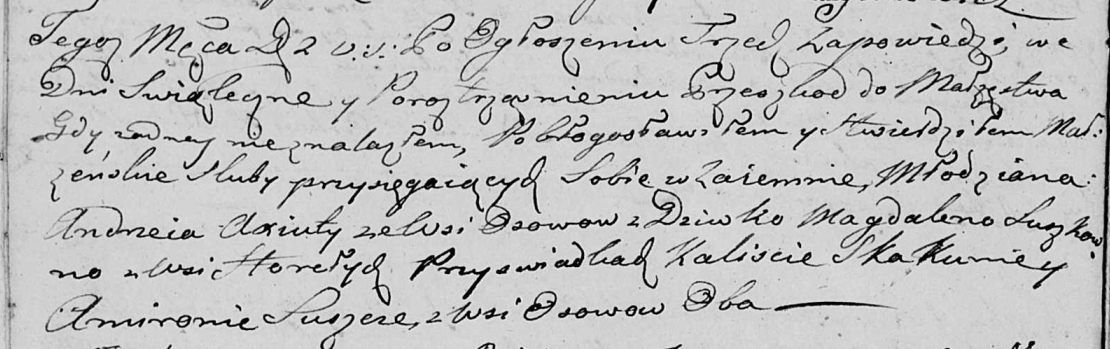 Tegoż Męca D 2 v.s: Po Ogłoszeniu Trzech Zapowiedzi, we
Dni Swiąteczne y Porostrząsnieniu Przeszkod do Małżęstwa
Gdy zadney nie znalazłem, Pobłogosławiłem y Stwierdziłem Mał:
zeńskie Sluby przysięgaiących Sobie wzaiemnie, Młodziana:
Andreia Axiuty ze Wsi Osowow z Dziwko Magdaleno Suszkow
no z Wsi Horełych Przy swiadkach Kaliscie Skakunie y
Amironie Suszcze, z Wsi Osowow Oba